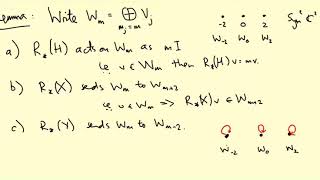 Lemma: Write W_m = ⊕_{m_j = m} V_j
-2 0 2 Sym² ℂ²
W_-2 W_0 W_2
a) R_*(H) acts on W_m as m I
i.e. v ∈ W_m then R_*(H)v = mv.
b) R_*(X) sends W_m to W_m+2
i.e. v ∈ W_m => R_*(X)v ∈ W_m+2
c) R_*(Y) sends W_m to W_m-2.
W_-2 W_0 W_2